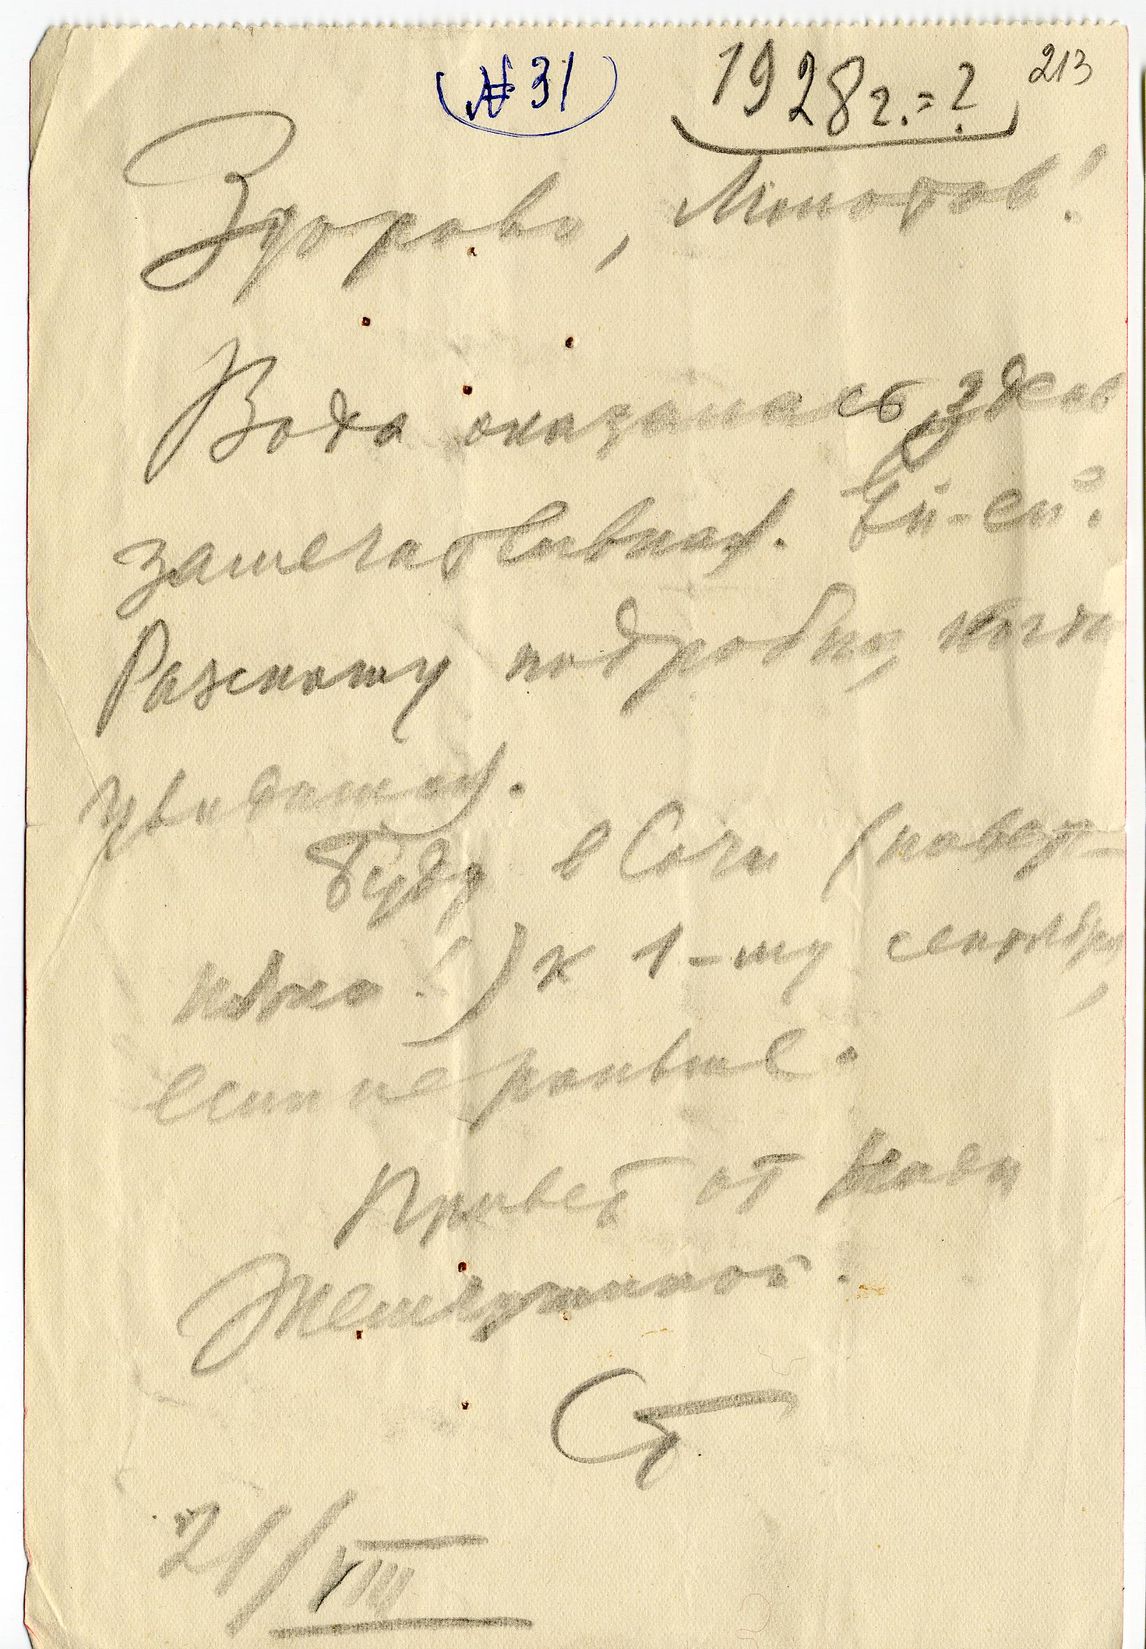 (№ 31) 1928 г. = ? 213
Здорово, Молотов!
Вода оказалась здесь
замечательная. Ей-ей.
Расскажу подробно, когда
увидимся.
Буду в Сочи (навер-
няка!) к 1-му сентября,
если не раньше.
Привет от Нади
Жемчужиной.
Ст
21/VIII